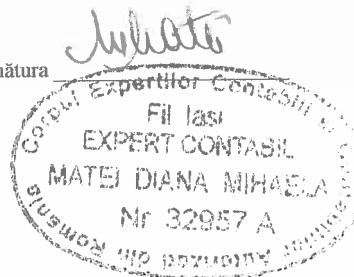 nătura
Corpul Experților Contabili și Contabililor Autorizați din Romania
Fil Iasi
EXPERT CONTABIL
MATEI DIANA MIHAELA
Nr 32957 A